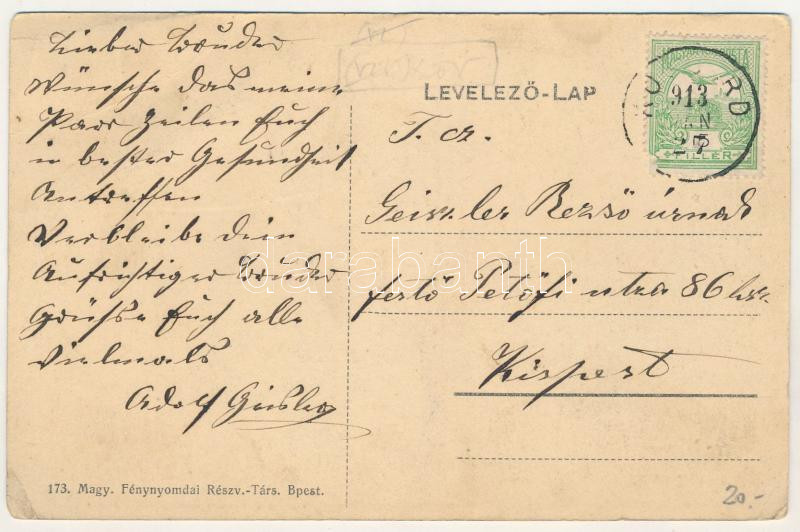 Lieber Bruder
Wünsche das meine
Paar Zeilen Euch
in bester Gesundheit
Antreffen
Verbleibe dein
Aufrichtiger Bruder
Grüsse Euch alle
Vielmals
Adolf Geisler
LEVELEZŐ-LAP
913
27
FILLER
T. cz.
Geiszler Rezső úrnak
festő Petőfi utza 86 hsz.
Kispest
darabanth
173. Magy. Fénynyomdai Részv.-Társ. Bpest.
20.-